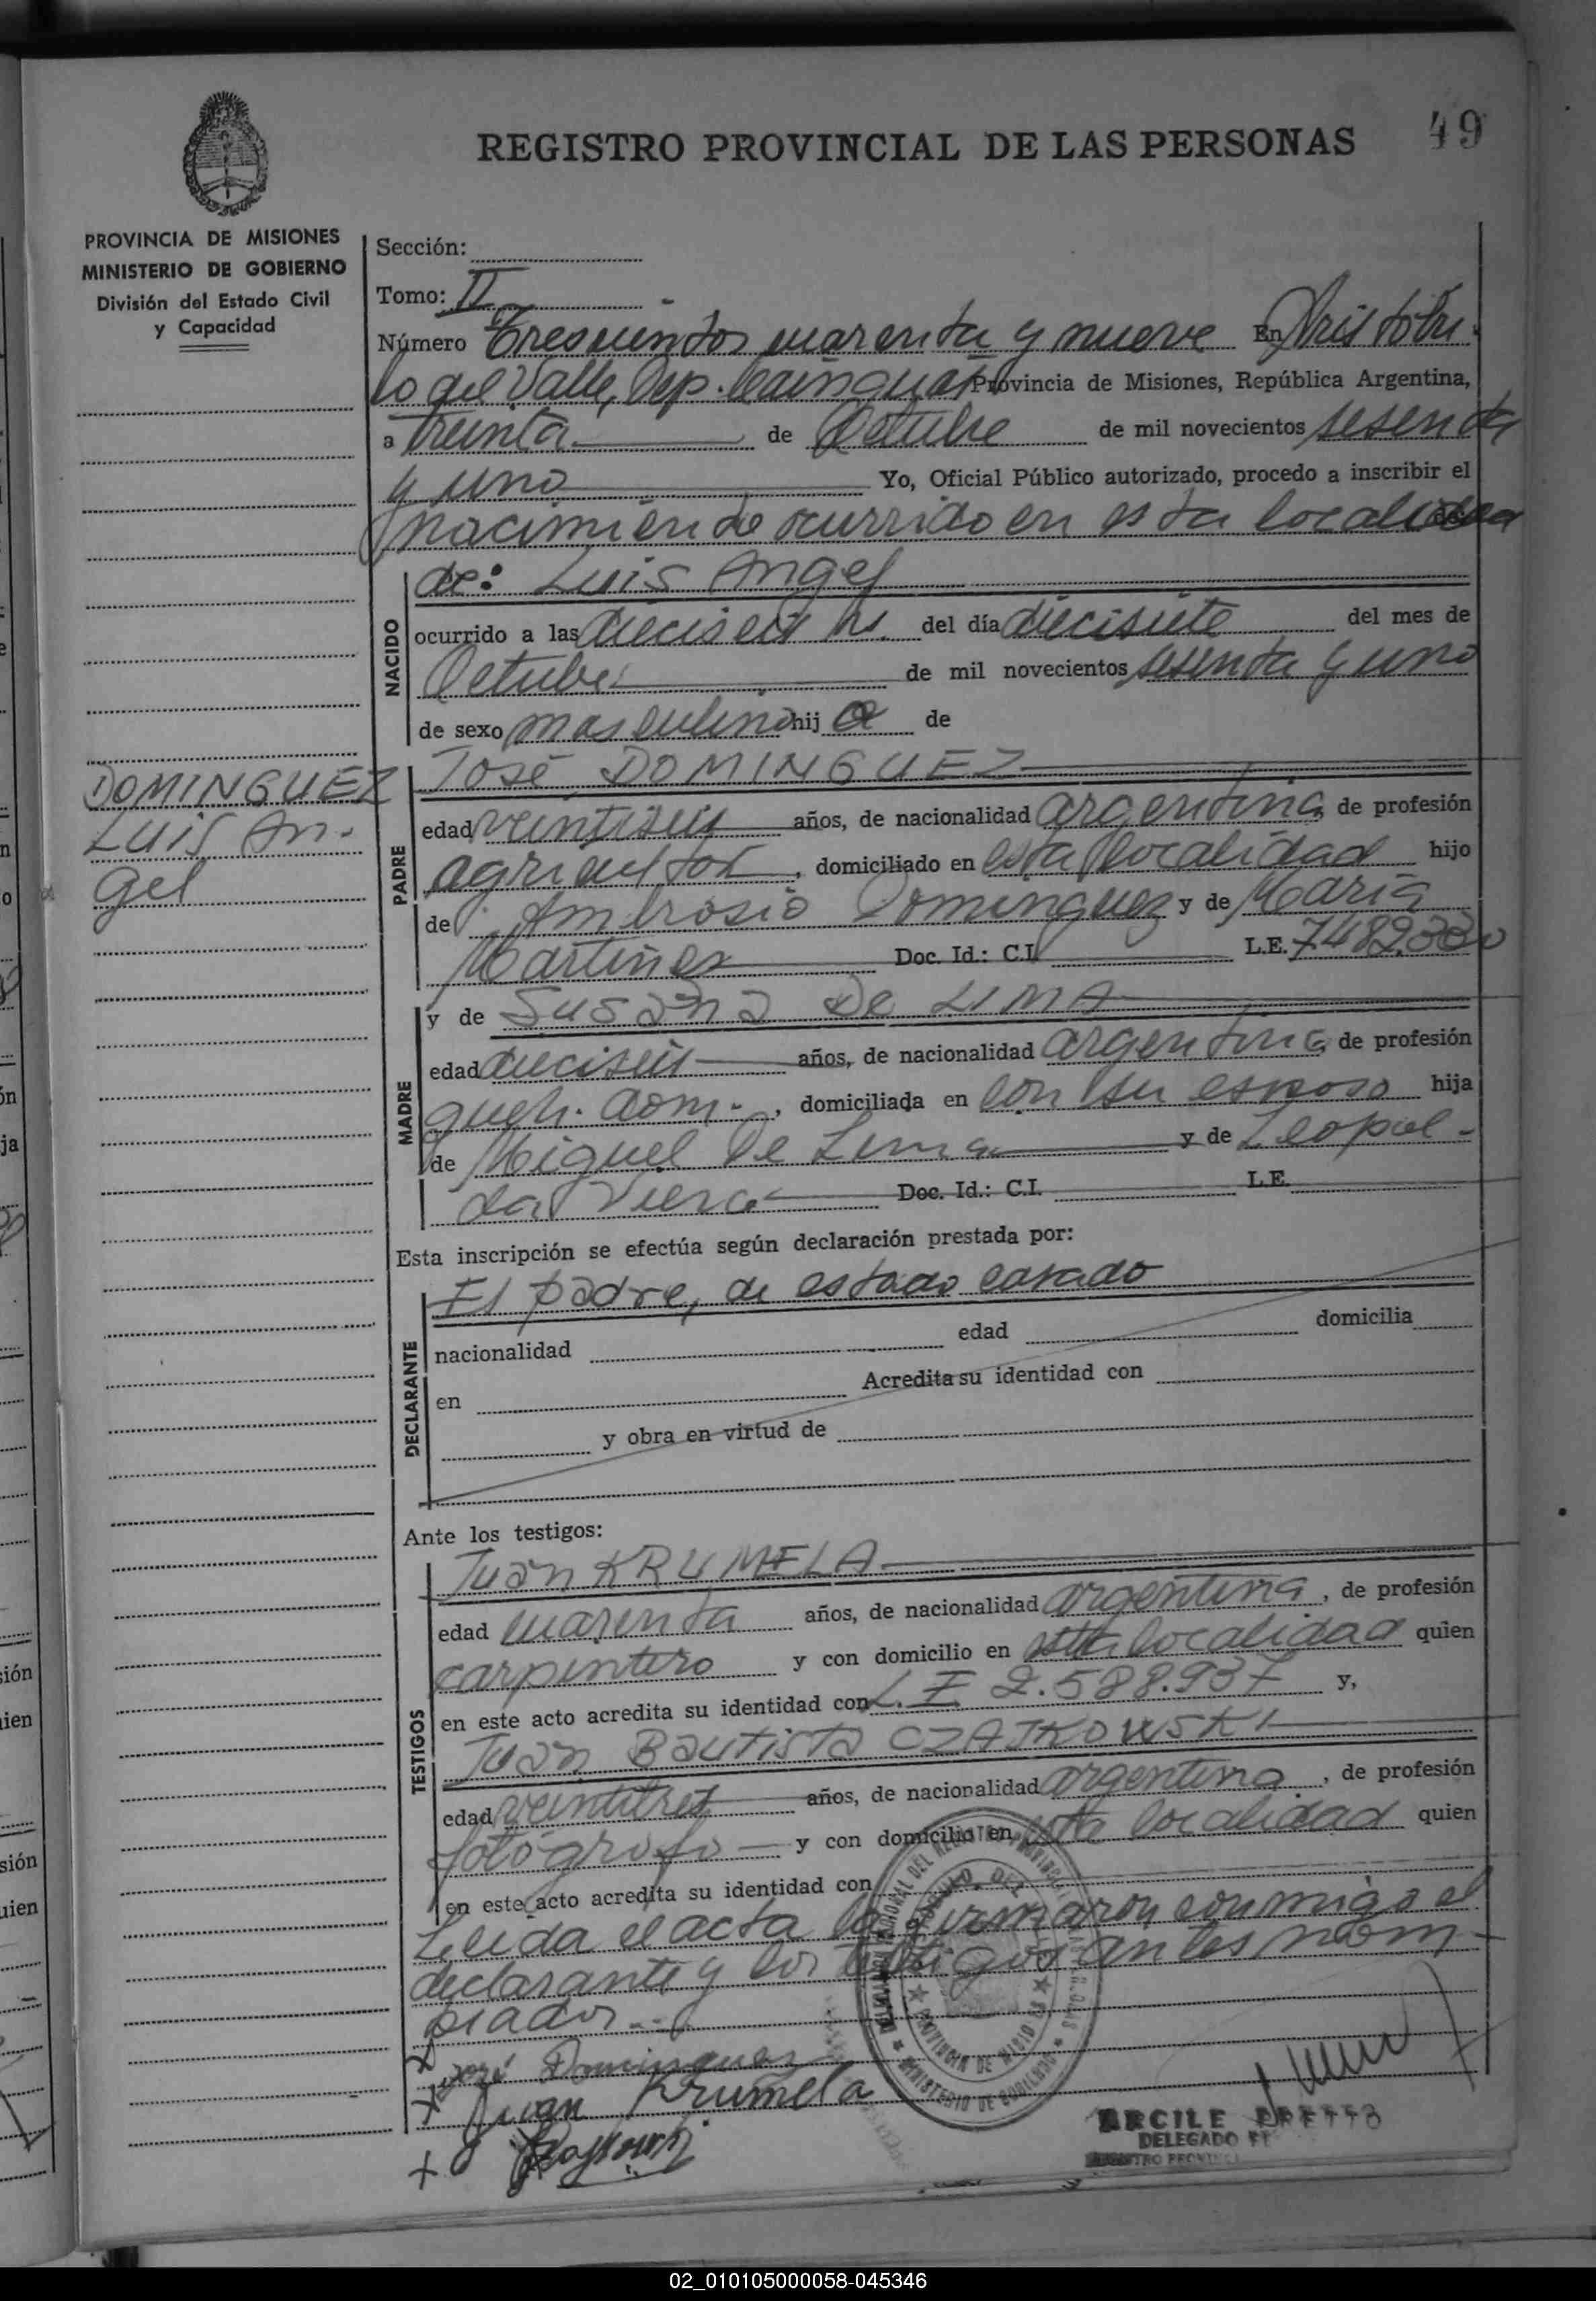 REGISTRO PROVINCIAL DE LAS PERSONAS
49
PROVINCIA DE MISIONES
MINISTERIO DE GOBIERNO
División del Estado Civil
y Capacidad
Sección:
Tomo: II
Número Trescientos cuarenta y nueve En Aristóbu-
lo del Valle, Dep. Cainguás Provincia de Misiones, República Argentina,
a treinta de Octubre de mil novecientos sesenta
y uno Yo, Oficial Público autorizado, procedo a inscribir el
nacimiento ocurrido en esta localidad
NACIDO
de: Luis Angel
ocurrido a las dieciseis hs. del día diecisiete del mes de
Octubre de mil novecientos sesenta y uno
de sexo masculino hij o de
DOMINGUEZ
Luis An-
gel
PADRE
José DOMINGUEZ
edad veintiseis años, de nacionalidad argentina, de profesión
agricultor, domiciliado en esta localidad hijo
de Ambrosio Dominguez y de María
Martinez Doc. Id.: C.I. L.E.
MADRE
y de Susana De LIMA
edad dieciseis años, de nacionalidad argentina, de profesión
queh. dom., domiciliada en con su esposo hija
de Miguel De Lima y de Leopol-
da Viera Doc. Id.: C.I. L.E.
Esta inscripción se efectúa según declaración prestada por:
DECLARANTE
El padre, de estado casado
nacionalidad edad domicilia
en Acredita su identidad con
y obra en virtud de
Ante los testigos:
TESTIGOS
Juan KRUMELA
edad cuarenta años, de nacionalidad argentina, de profesión
carpintero y con domicilio en esta localidad quien
en este acto acredita su identidad con L.E 2.588.937 y,
Juan Bautista CZAJKOWSKI
edad veintitres años, de nacionalidad argentina, de profesión
fotógrafo y con domicilio en esta localidad quien
en este acto acredita su identidad con
Leída el acta la firmaron conmigo el
declarante y los testigos antes nom-
brados.-
José Dominguez
Juan Krumela
DELEGADO
02_010105000058-045346